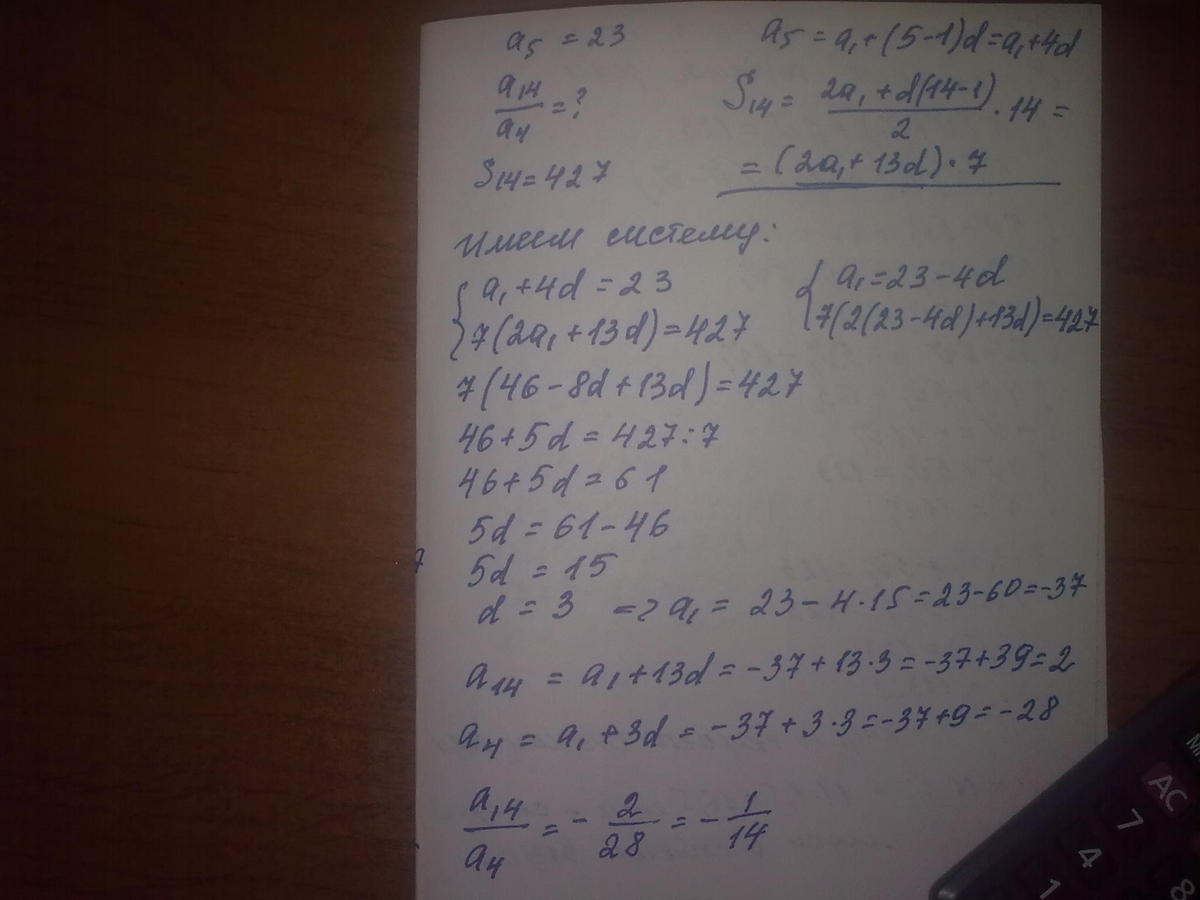 a₅ = 23
a₁₄/a₄ = ?
S₁₄ = 427
a₅ = a₁ + (5-1)d = a₁ + 4d
S₁₄ = (2a₁ + d(14-1))/2 · 14 =
= (2a₁ + 13d) · 7
Имеем систему:
{ a₁ + 4d = 23
7(2a₁ + 13d) = 427
{ a₁ = 23 - 4d
7(2(23 - 4d) + 13d) = 427
7(46 - 8d + 13d) = 427
46 + 5d = 427 : 7
46 + 5d = 61
5d = 61 - 46
5d = 15
d = 3 => a₁ = 23 - 4·15 = 23 - 60 = -37
a₁₄ = a₁ + 13d = -37 + 13·3 = -37 + 39 = 2
a₄ = a₁ + 3d = -37 + 3·3 = -37 + 9 = -28
a₁₄/a₄ = - 2/28 = - 1/14
AC
7
4
8
1